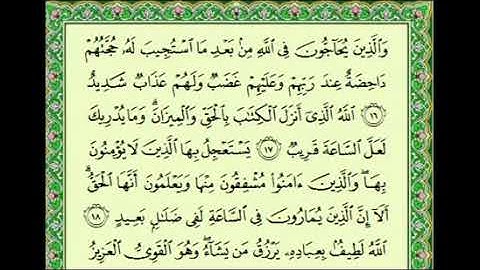 وَٱلَّذِينَ يُحَآجُّونَ فِى ٱللَّهِ مِنۢ بَعْدِ مَا ٱسْتُجِيبَ لَهُۥ حُجَّتُهُمْ
دَاحِضَةٌ عِندَ رَبِّهِمْ وَعَلَيْهِمْ غَضَبٌ وَلَهُمْ عَذَابٌ شَدِيدٌ
١٦ ٱللَّهُ ٱلَّذِىٓ أَنزَلَ ٱلْكِتَٰبَ بِٱلْحَقِّ وَٱلْمِيزَانَ ۗ وَمَا يُدْرِيكَ
لَعَلَّ ٱلسَّاعَةَ قَرِيبٌ ١٧ يَسْتَعْجِلُ بِهَا ٱلَّذِينَ لَا يُؤْمِنُونَ
بِهَا ۖ وَٱلَّذِينَ ءَامَنُوا۟ مُشْفِقُونَ مِنْهَا وَيَعْلَمُونَ أَنَّهَا ٱلْحَقُّ ۗ
أَلَآ إِنَّ ٱلَّذِينَ يُمَارُونَ فِى ٱلسَّاعَةِ لَفِى ضَلَٰلٍۭ بَعِيدٍ ١٨
ٱللَّهُ لَطِيفٌۢ بِعِبَادِهِۦ يَرْزُقُ مَن يَشَآءُ ۖ وَهُوَ ٱلْقَوِىُّ ٱلْعَزِيزُ